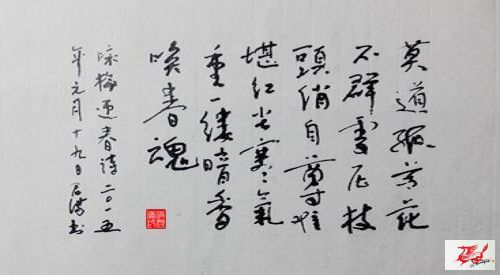 莫道孤花
不群雪压枝
頭俏自尊難
堪紅尘寒氣
重一缕暗香
唤春魂
咏梅迎春诗二〇一五
年元月十九日书